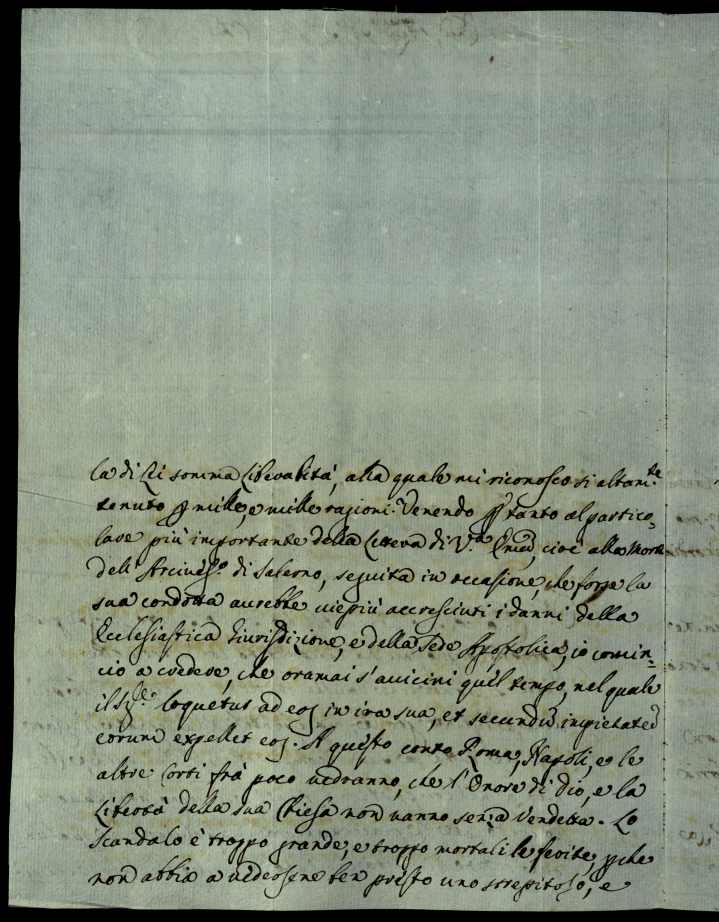 la di Lei somma Liberalità, alla quale mi riconosco sì altam.te
tenuto p mille, e mille ragioni. Venendo p tanto al partico-
lare più importante della Lettera di V.ra Em.za, cioè alla Morte
dell'Arcives.o di Salerno, seguita in occasione, che forse la
sua condotta aurebbe uiepiù accresciuti i danni della
Ecclesiastica Giurisdizione, e della Sede Apostolica, io comin-
cio a credere, che oramai s'auicini quel tempo, nel quale
il Sig.re loquetur ad eos in ira sua, et secundũ impietatẽ
eorum expellet eos. A questo conto Roma, Napoli, e le
altre Corti frà poco uedranno, che l'Onore di Dio, e la
Libertà della sua Chiesa non uanno senza Vendetta. Lo
scandalo è troppo grande, e troppo mortali le ferite, pche
non abbia a uedersene ben presto uno strepitoso, e